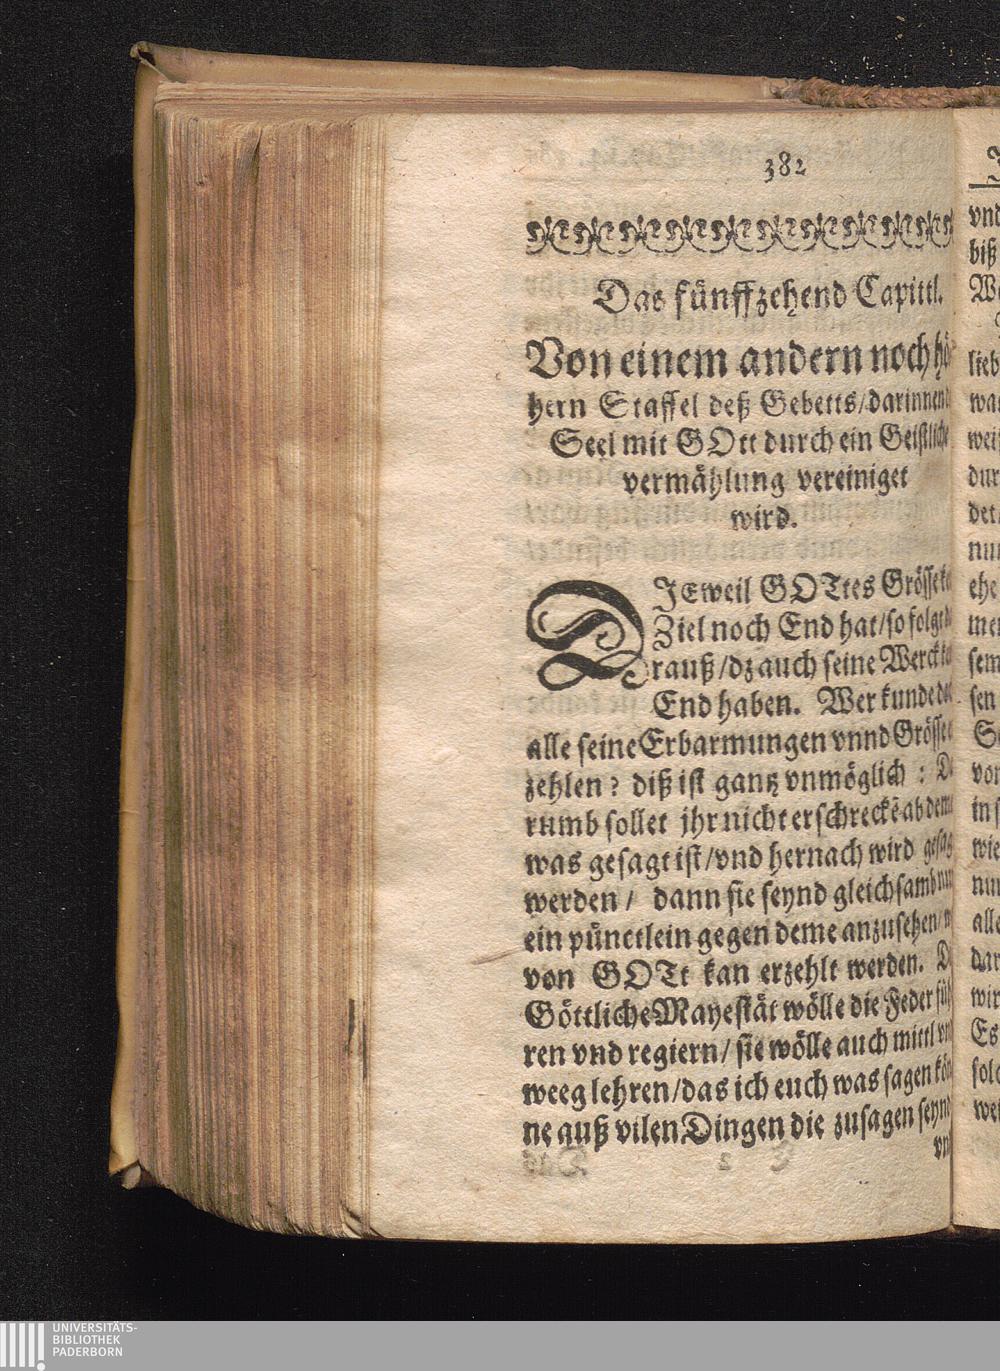 382
Das fünffzehend Capittl.
Von einem andern noch hö
hern Staffel deß Gebetts/darinnen
Seel mit GOtt durch ein Geistliche
vermählung vereiniget
wird.
DIEweil GOTtes Grösse
Ziel noch End hat/so folgt
drauß/dz auch seine Werck
End haben. Wer kunde
alle seine Erbarmungen vnnd Grösse
zehlen? diß ist gantz vnmöglich :
rumb sollet jhr nicht erschreckē ab dem
was gesagt ist/vnd hernach wird gesag
werden/ dann sie seynd gleichsamb nur
ein pünctlein gegen deme anzusehen/
von GOTt kan erzehlt werden.
Göttliche Mayestät wölle die Feder füh
ren vnd regiern/ sie wölle auch mittl vn
weeg lehren/das ich euch was sagen kön
ne auß vilen Dingen die zusagen seynd
vn
vnd
biß
We
lieb
was
weiß
dur
det/
nun
ehe
men
sem
sen
Se
von
in s
wie
nun
alle
dar
wir
Es
solc
wei
UNIVERSITÄTS-
BIBLIOTHEK
PADERBORN